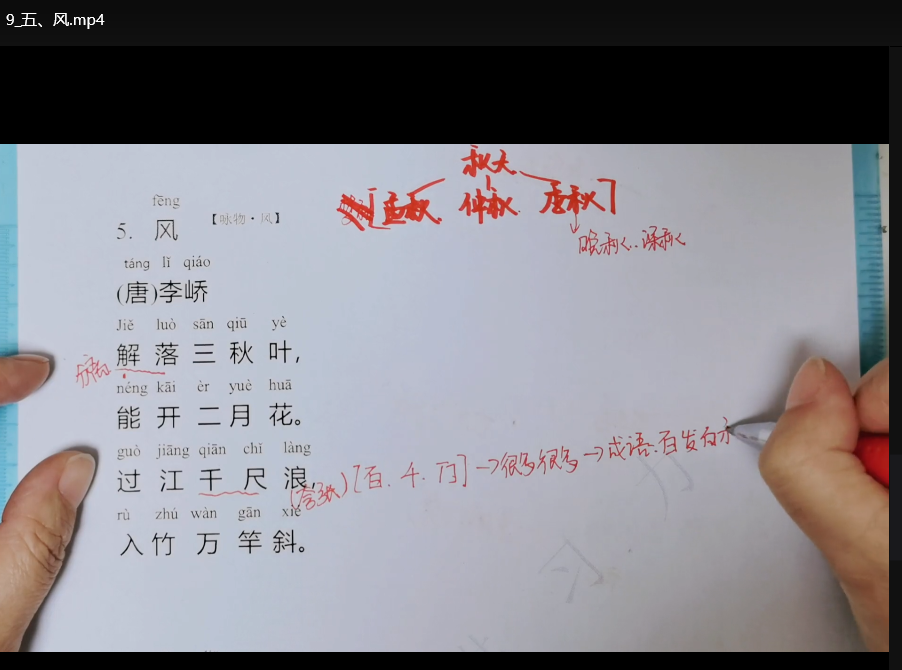 9_五、风.mp4
秋天
[孟秋 仲秋 季秋]
晚秋、深秋
fēng
5. 风 【咏物·风】
táng lǐ qiáo
(唐)李峤
Jiě luò sān qiū yè
解落三秋叶,
néng kāi èr yuè huā
能开二月花。
guò jiāng qiān chǐ làng
过江千尺浪,
(夸张)[百、千、万]→很多很多→成语:百发百
rù zhú wàn gān xié
入竹万竿斜。